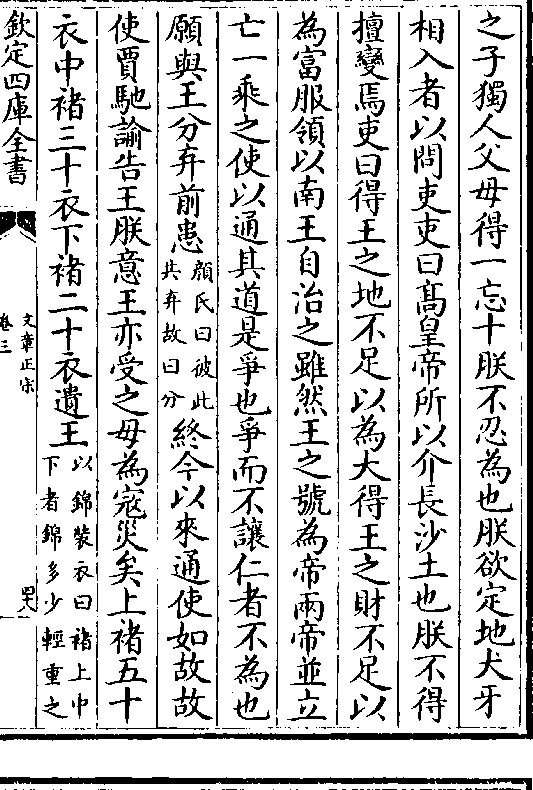 之子獨人父母得一忘十朕不忍為也朕欲定地犬牙
相入者以問吏吏曰髙皇帝所以介長沙土也朕不得
擅變焉吏曰得王之地不足以為大得王之財不足以
為富服領以南王自治之雖然王之號為帝兩帝並立
亡一乘之使以通其道是爭也爭而不讓仁者不為也
願與王分弃前患顔氏曰彼此共弃故曰分終今以來通使如故故
使賈馳諭告王朕意王亦受之毋為寇災矣上褚五十
衣中褚三十衣下褚二十衣遺王以錦裝衣曰褚上中下者錦多少輕重之
欽定四庫全書
文章正宗
卷三